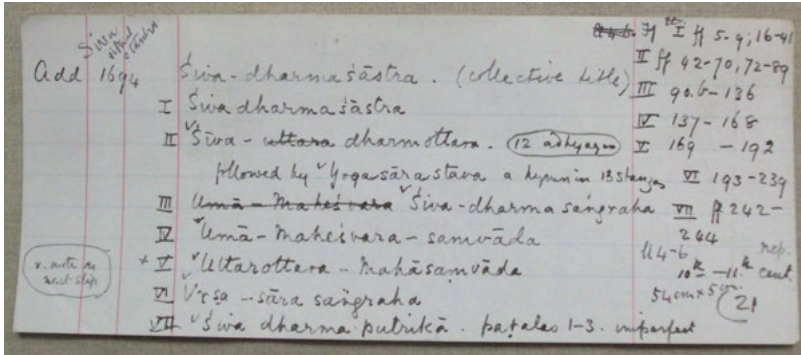 Śiva
ritual
tantra
Add 1694 Śiva-dharmaśāstra. (collective title)
I Śivadharmaśāstra
II Śiva-uttara dharmottara. 12 adhyayas
followed by Yogasārastava a hymn in 13 stanzas
III Umā-Maheśvara Śiva-dharma saṅgraha
IV Umā-Maheśvara-saṃvāda
x V Uttarottara-Mahāsaṃvāda
VI Vṛṣa-sāra saṅgraha
VII Śiva dharma putrikā. paṭalas 1-3. imperfect
v. note on
next slip
I ff 5-9; 16-41
II ff 42-70, 72-89
III 90.b-136
IV 137-168
V 169-192
VI 193-239
VII ff 242-
244
Nep.
10th-11th cent.
54cm x 5
21